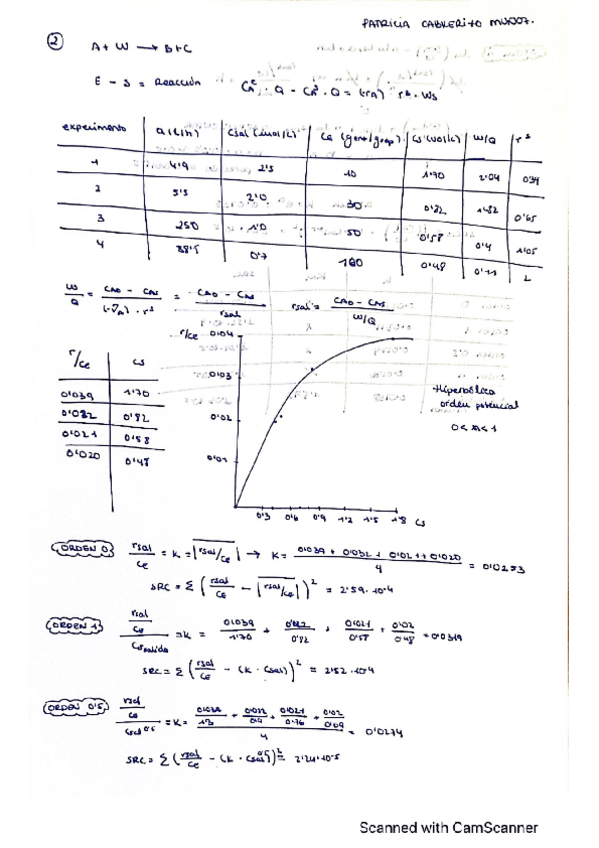 PATRICIA CABLERIZO MUÑOZ.
② A + W → B + C
E - S = Reacción Ca^e · Q - Ca^s · Q = (-rA) r^s · Ws
experimento Q (L/h) Csal (mol/L) Ce (gcat/grap) Cs (mol/L) W/Q r^s
1 419 2'5 10 1'70 2'04 0'39
2 5'5 2'0 30 0'82 1'82 0'65
3 250 1'0 50 0'58 0'4 1'05
4 0'7 100 0'48 0'11 2
W/Q = (CAO - CAS)/((-rA) · r^s) = (CAO - CAS)/rsal rsal = (CAO - CAS)/(W/Q)
r/Ce Cs
0'039 1'70
0'032 0'82
0'021 0'58
0'020 0'48
r/Ce 0'04
0'03
0'02
0'01
0'3 0'6 0'9 1'2 1'5 1'8 Cs
Hiperbólica
orden potencial
0 < n < 1
ORDEN 0 rsal/Ce = K = |rsal/Ce| → K = (0'039 + 0'032 + 0'021 + 0'020)/4 = 0'0253
SRC = Σ (rsal/Ce - |rsal/Ce|)² = 2'59·10-4
ORDEN 1 (rsal/Ce)/Cs salida = K = 0'039/1'70 + 0'032/0'82 + 0'021/0'58 + 0'02/0'48 = 0'0319
SRC = Σ (rsal/Ce - (K · Csal))² = 2'52·10-4
ORDEN 0'5 (rsal/Ce)/Csal^0'5 = K = (0'039/1'3 + 0'032/0'9 + 0'021/0'76 + 0'02/0'69)/4 = 0'0274
SRC = Σ (rsal/Ce - (K · Csal^0'5))² = 2'21·10-5
Scanned with CamScanner